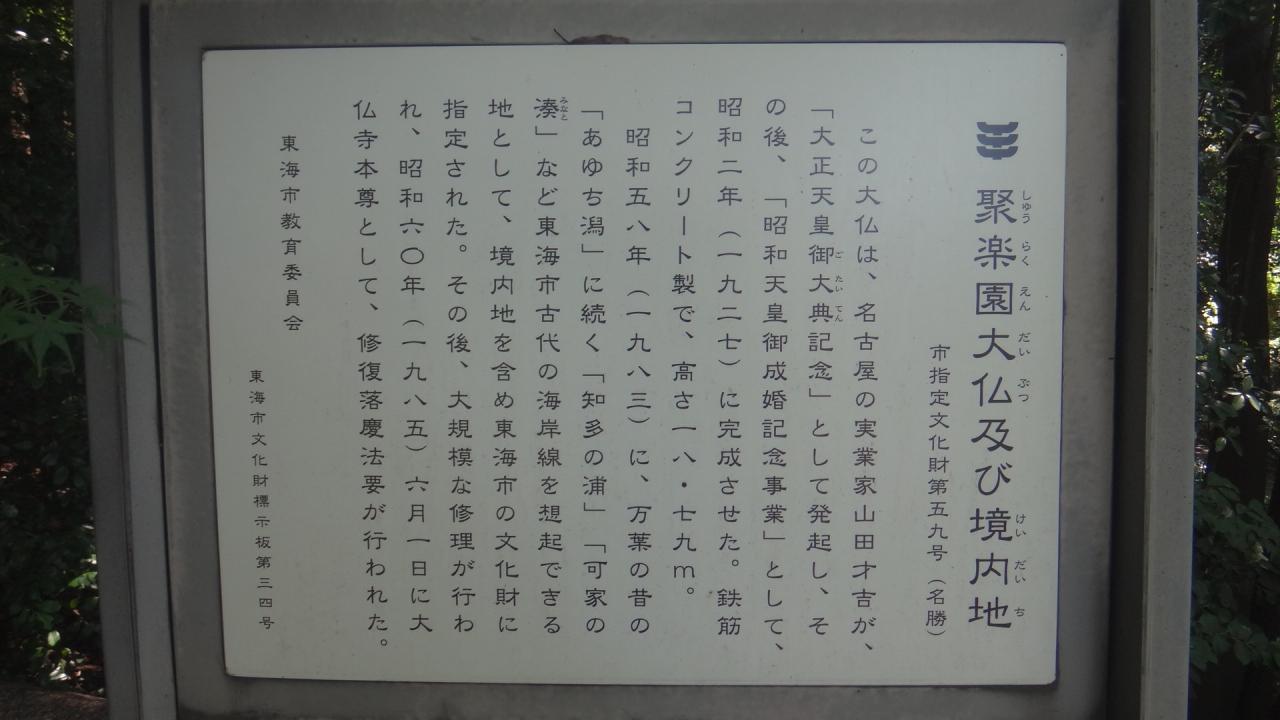 聚楽園大仏及び境内地
しゅうらくえんだいぶつ けいだいち
市指定文化財第五九号（名勝）
この大仏は、名古屋の実業家山田才吉が、
「大正天皇御大典記念」として発起し、そ
ごたいてん
の後、「昭和天皇御成婚記念事業」として、
昭和二年（一九二七）に完成させた。鉄筋
コンクリート製で、高さ一八・七九m。
昭和五八年（一九八三）に、万葉の昔の
「あゆち潟」に続く「知多の浦」「可家の
湊」など東海市古代の海岸線を想起できる
みなと
地として、境内地を含め東海市の文化財に
指定された。その後、大規模な修理が行わ
れ、昭和六〇年（一九八五）六月一日に大
仏寺本尊として、修復落慶法要が行われた。
東海市教育委員会
東海市文化財標示板第三四号